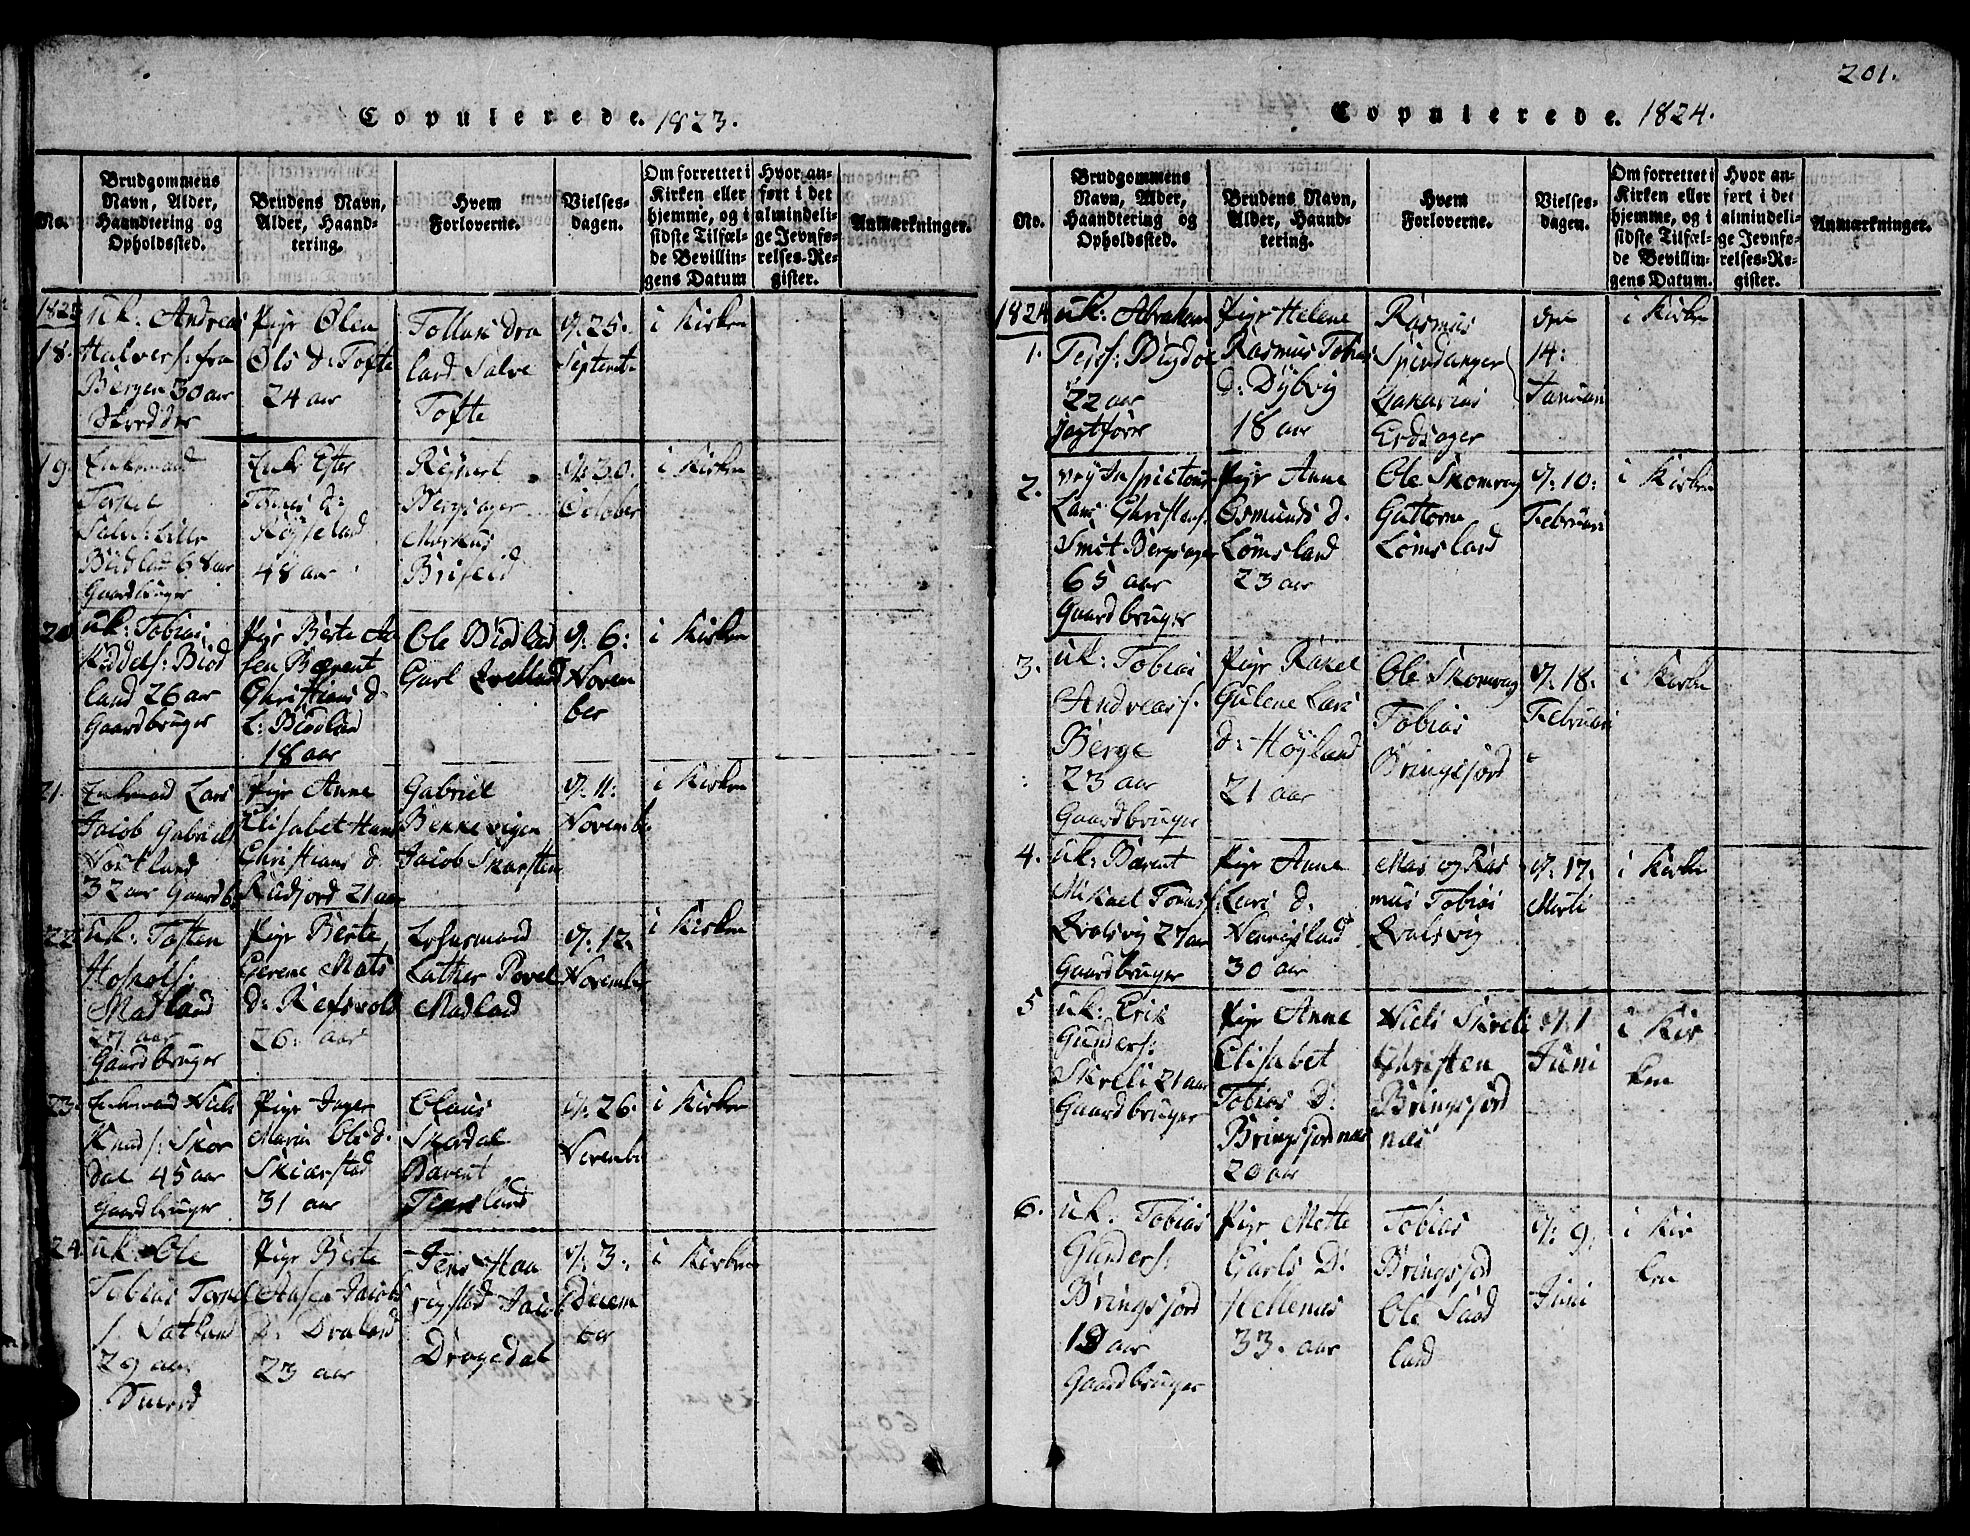 Copulerede. 1823.
No.
Brudgommens Navn, Alder, Haandtering og Opholdssted.
Brudens Navn, Alder, Haandtering.
Hvem Forloverne.
Vielsesdagen.
Om forrettet i Kirken eller hjemme, og i sidste Tilfælde Bevillingens Datum
Hvor anført i det almindelige Jevnførelses-Register.
Anmærkninger.
1823
18.
uk: Andreas
Halvers: fra
Bergen 30 aar
Skredder
Pige Olen
Ols d: Tofte
24 aar
Tollak Dra
land Salve
Tofte
d: 25.
Septemb
i Kirken
19.
Enkemand
Terkel
68 aar
Gaardbruger
Enke Efter
48 aar
Reinert
Bergsager
Markus
d: 30.
October
i Kirken
20
uk: Tobias
Keddels: Biod
land 26 aar
Gaardbruger
Pige Berte Aa
sen Bærent
Christians d.
L: Biodland
18 aar
Ole Biodland
Carl
d: 6:
Novem
ber
i Kirken
21.
Enkemand Lars
Jacob Gabriels
32 aar Gaardb.
Pige Anne
Elisabet Hans
Christians d.
21 aar
Gabriel
Bekkevigen
Jacob Skarsten
d: 11:
Novemb.
i Kirken
22
uk: Tosten
Madland
27 aar
Gaardbruger
Pige Berte
Serene Mats
d: Refsvold
26. aar
Lehnsmand
Lather Povel
Madland
d: 12.
November
i Kirken
23.
Enkemand Niels
Knuds: Skor
dal 45 aar
Gaardbruger
Pige Inger
Maria Ols d.
Skiærstad
31 aar
Claus
Skordal
Bærent
d: 26.
Novemb
i Kirken
24.
uk Ole
Tobias Terkel
s.
29 aar
Pige Berte
Aasen Jacobs
D: Draland
23 aar
Jens Haa
rigstad Jacob
Dragedal
d: 3:
Decem
ber
i Kirken
201.
Copulerede. 1824.
No.
Brudgommens Navn, Alder, Haandtering og Opholdssted.
Brudens Navn, Alder, Haandtering.
Hvem Forloverne.
Vielsesdagen.
Om forrettet i Kirken eller hjemme, og i sidste Tilfælde Bevillingens Datum.
Hvor anført i det almindelige Jevnførelses-Register.
Anmærkninger.
1824
1.
uk: Abraham
22 aar
jagtfører
Pige Helene
Rasmus Tobias
d: Dybvig
18 aar
Rasmus
Spindanger
Zakarias
den
14:
Januari
i Kirken
2.
Lars Christens.
Smit Bergsager
65 aar
Gaardbruger
Pige Anne
Osmunds d.
Lømsland
23 aar
Ole Skomrag
Guttorm
Lømsland
d: 10:
Februari
i Kirken
3.
uk: Tobias
Andreass.
Berge
23 aar
Gaardbruger
Pige Rakel
Gulene Lars
d: Høyland
21 aar
Ole Skomrag
Tobias
Bringsjord
d: 18.
Februari
i Kirken
4.
uk: Bærent
Mikael Tønnes s.
Qvalsvig 27 aar
Gaardbruger
Pige Anne
Lars d.
30 aar
Mas og Ras
mus Tobias
Qvalsvig
d: 17.
Marti
i Kirken
5
uk: Erik
Gunders:
Skreli 21 aar
Gaardbruger
Pige Anne
Elisabet
Tobias D:
Bringsjordnes
20 aar
Niels Skreli
Christen
Bringsjord
næs
d: 1
Juni
i Kir
ken
6.
uk. Tobias
Gunders:
Bringsjord
aar
Gaardbruger
Pige Mette
Carls D:
Hellenæs
33. aar
Tobias
Bringsjord
Ole Saad
land
d: 9.
Juni
i Kir
ken